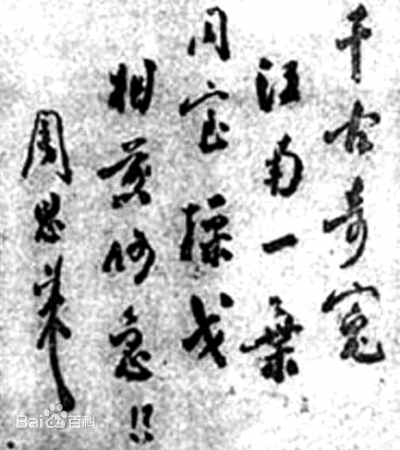 千古奇冤
江南一葉
同室操戈
相煎何急!!
周恩来
Bai百科